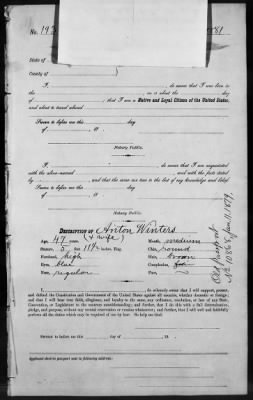 No. 192
State of
County of }
I, , do swear that I was born in
, on or about the day
of , that I am a Native and Loyal Citizen of the United States,
and about to travel abroad
Sworn to before me this day
of , 18 .
Notary Public.
I, , do swear that I am acquainted
with the above-named , and with the facts stated
by , and that the same are true to the best of my knowledge and belief.
Sworn to before me this day
of 18 .
Notary Public.
DESCRIPTION OF Anton Winters
(& wife)
Age, 47 years, Mouth, medium
Stature, 5 feet 11 1/2 inches, Eng. Chin, round
Forehead, high Hair, brown
Eyes, blue Complexion,
Nose, Face,
Old passport
No. 10868, Jan. 11, 1879.
I, , do solemnly swear that I will support, protect,
and defend the Constitution and Government of the United States against all enemies, whether domestic or foreign;
and that I will bear true faith, allegiance, and loyalty to the same, any ordinance, resolution, or law of any State,
Convention, or Legislature to the contrary notwithstanding; and further, that I do this with a full determination,
pledge, and purpose, without any mental reservation or evasion whatsoever; and further, that I will well and faithfully
perform all the duties which may be required of me by law. So help me God.
Sworn to before me this day of , 18 .
Applicant desires passport sent to following address: